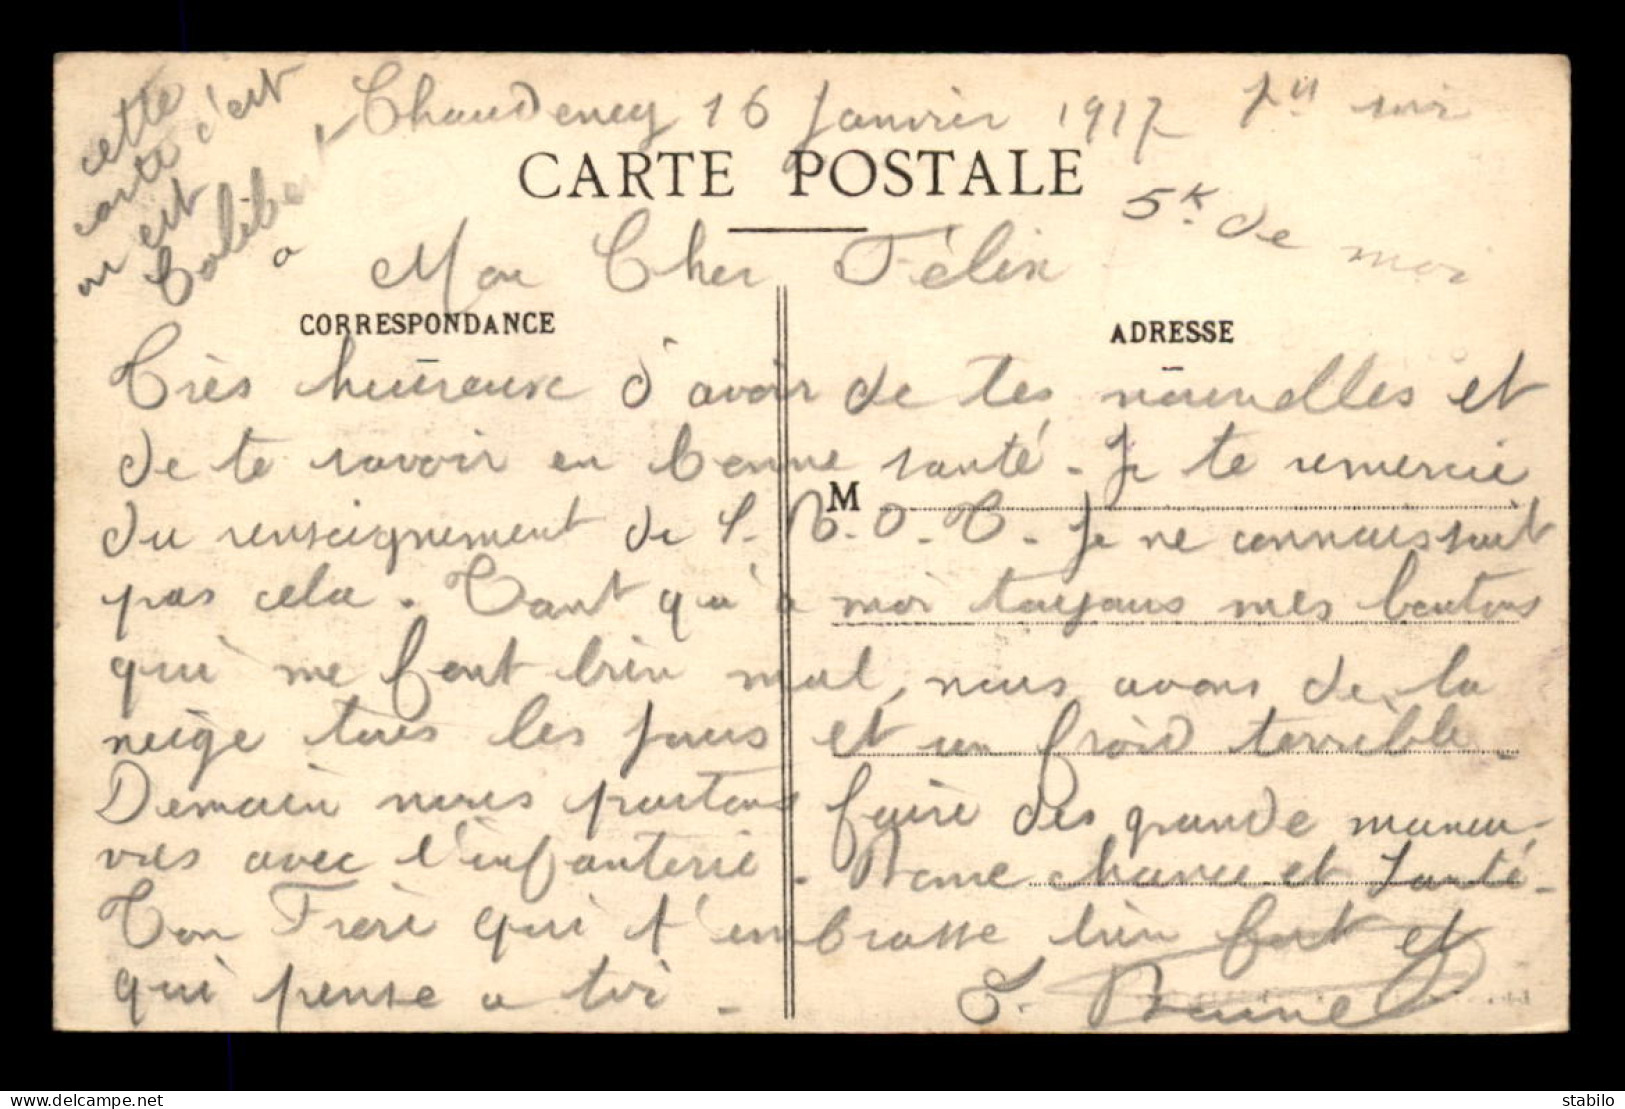 cette
carte c'est
ou est
Colibert
a
Chaudeney 16 Janvier 1917 7h soir
CARTE POSTALE
5k. de moi
Mon Cher Félix
CORRESPONDANCE
ADRESSE
Très heureux d'avoir de tes nouvelles et
de te savoir en bonne santé - Je te remercie
M
du renseignement de S. R. O. T. Je ne connaissait
pas cela. Tant qu'à moi toujours mes boutons
qui me font bien mal, nous avons de la
neige tous les jours et un froid terrible.
Demain nous partons faire des grande maneu-
vres avec l'infanterie. Bonne chance et Santé -
Ton Frère qui t'embrasse bien fort et
qui pense a toi -
delcampe.net
stabilo